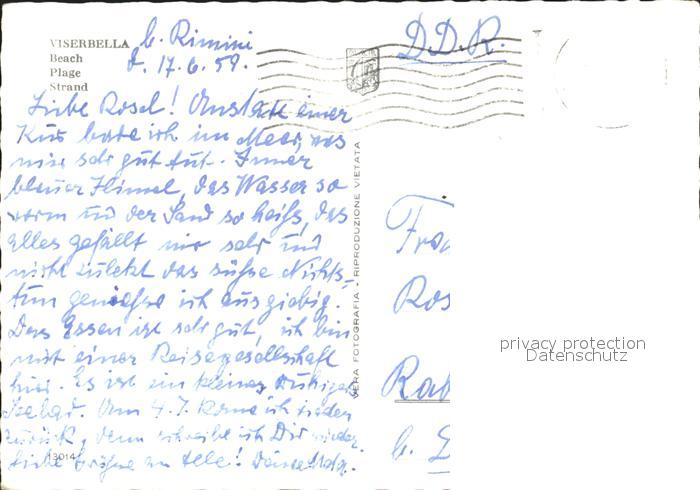 VISERBELLA
Beach
Plage
Strand
b. Rimini
d. 17.6.59.
D.D.R.
Liebe Rosel! Anstatt einer
Kur bade ich im Meer, was
mir sehr gut tut. Immer
blauer Himmel, das Wasser so
warm und der Sand so heiß, das
alles gefällt mir sehr und
nicht zuletzt das süße Nichts-
tun genieße ich ausgiebig.
Das Essen ist sehr gut, ich bin
mit einer Reisegesellschaft
hier. Es ist ein kleines ruhiges
Seebad. Am 4.7. komme ich wieder
zurück, dann schreibe ich Dir wieder.
Liebe Grüße an alle! Deine
13014
VERA FOTOGRAFIA - RIPRODUZIONE VIETATA
Fra
Ros
Rad
b.
privacy protection
Datenschutz